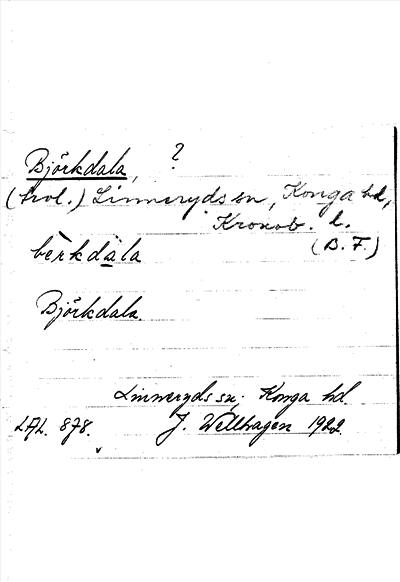 Björkdala, ?
(trol.) Linneryds sn, Konga hd,
Kronob. l.
(B. F.)
bèrkdàla
Björkdala.
Linneryds sn; Konga hd
LAL. 878. J. Wellhagen 1922.